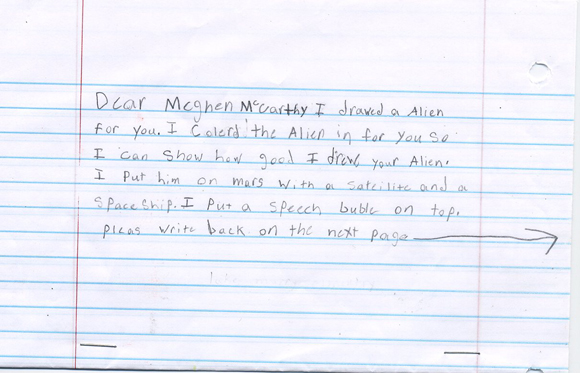 Dear Meghen McCarthy I drawed a Alien
for you. I Colerd the Alien in for you so
I can show how good I drawd your Alien.
I Put him on mars with a satellite and a
spaceship. I Put a speech buble on top.
pleas write back on the next page